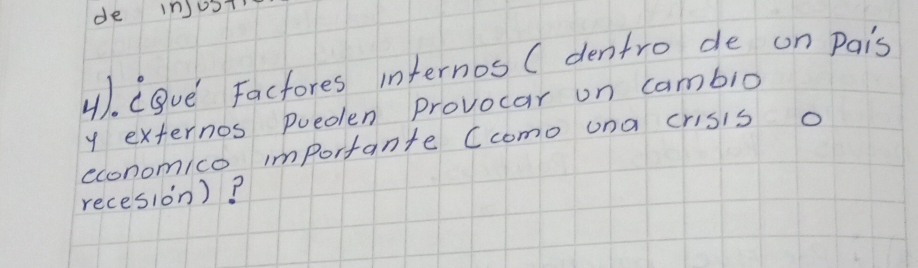 de
4). ¿Qué Factores internos ( dentro de un País
y externos pueden provocar un cambio
economico importante (como una crisis o
recesión) ?